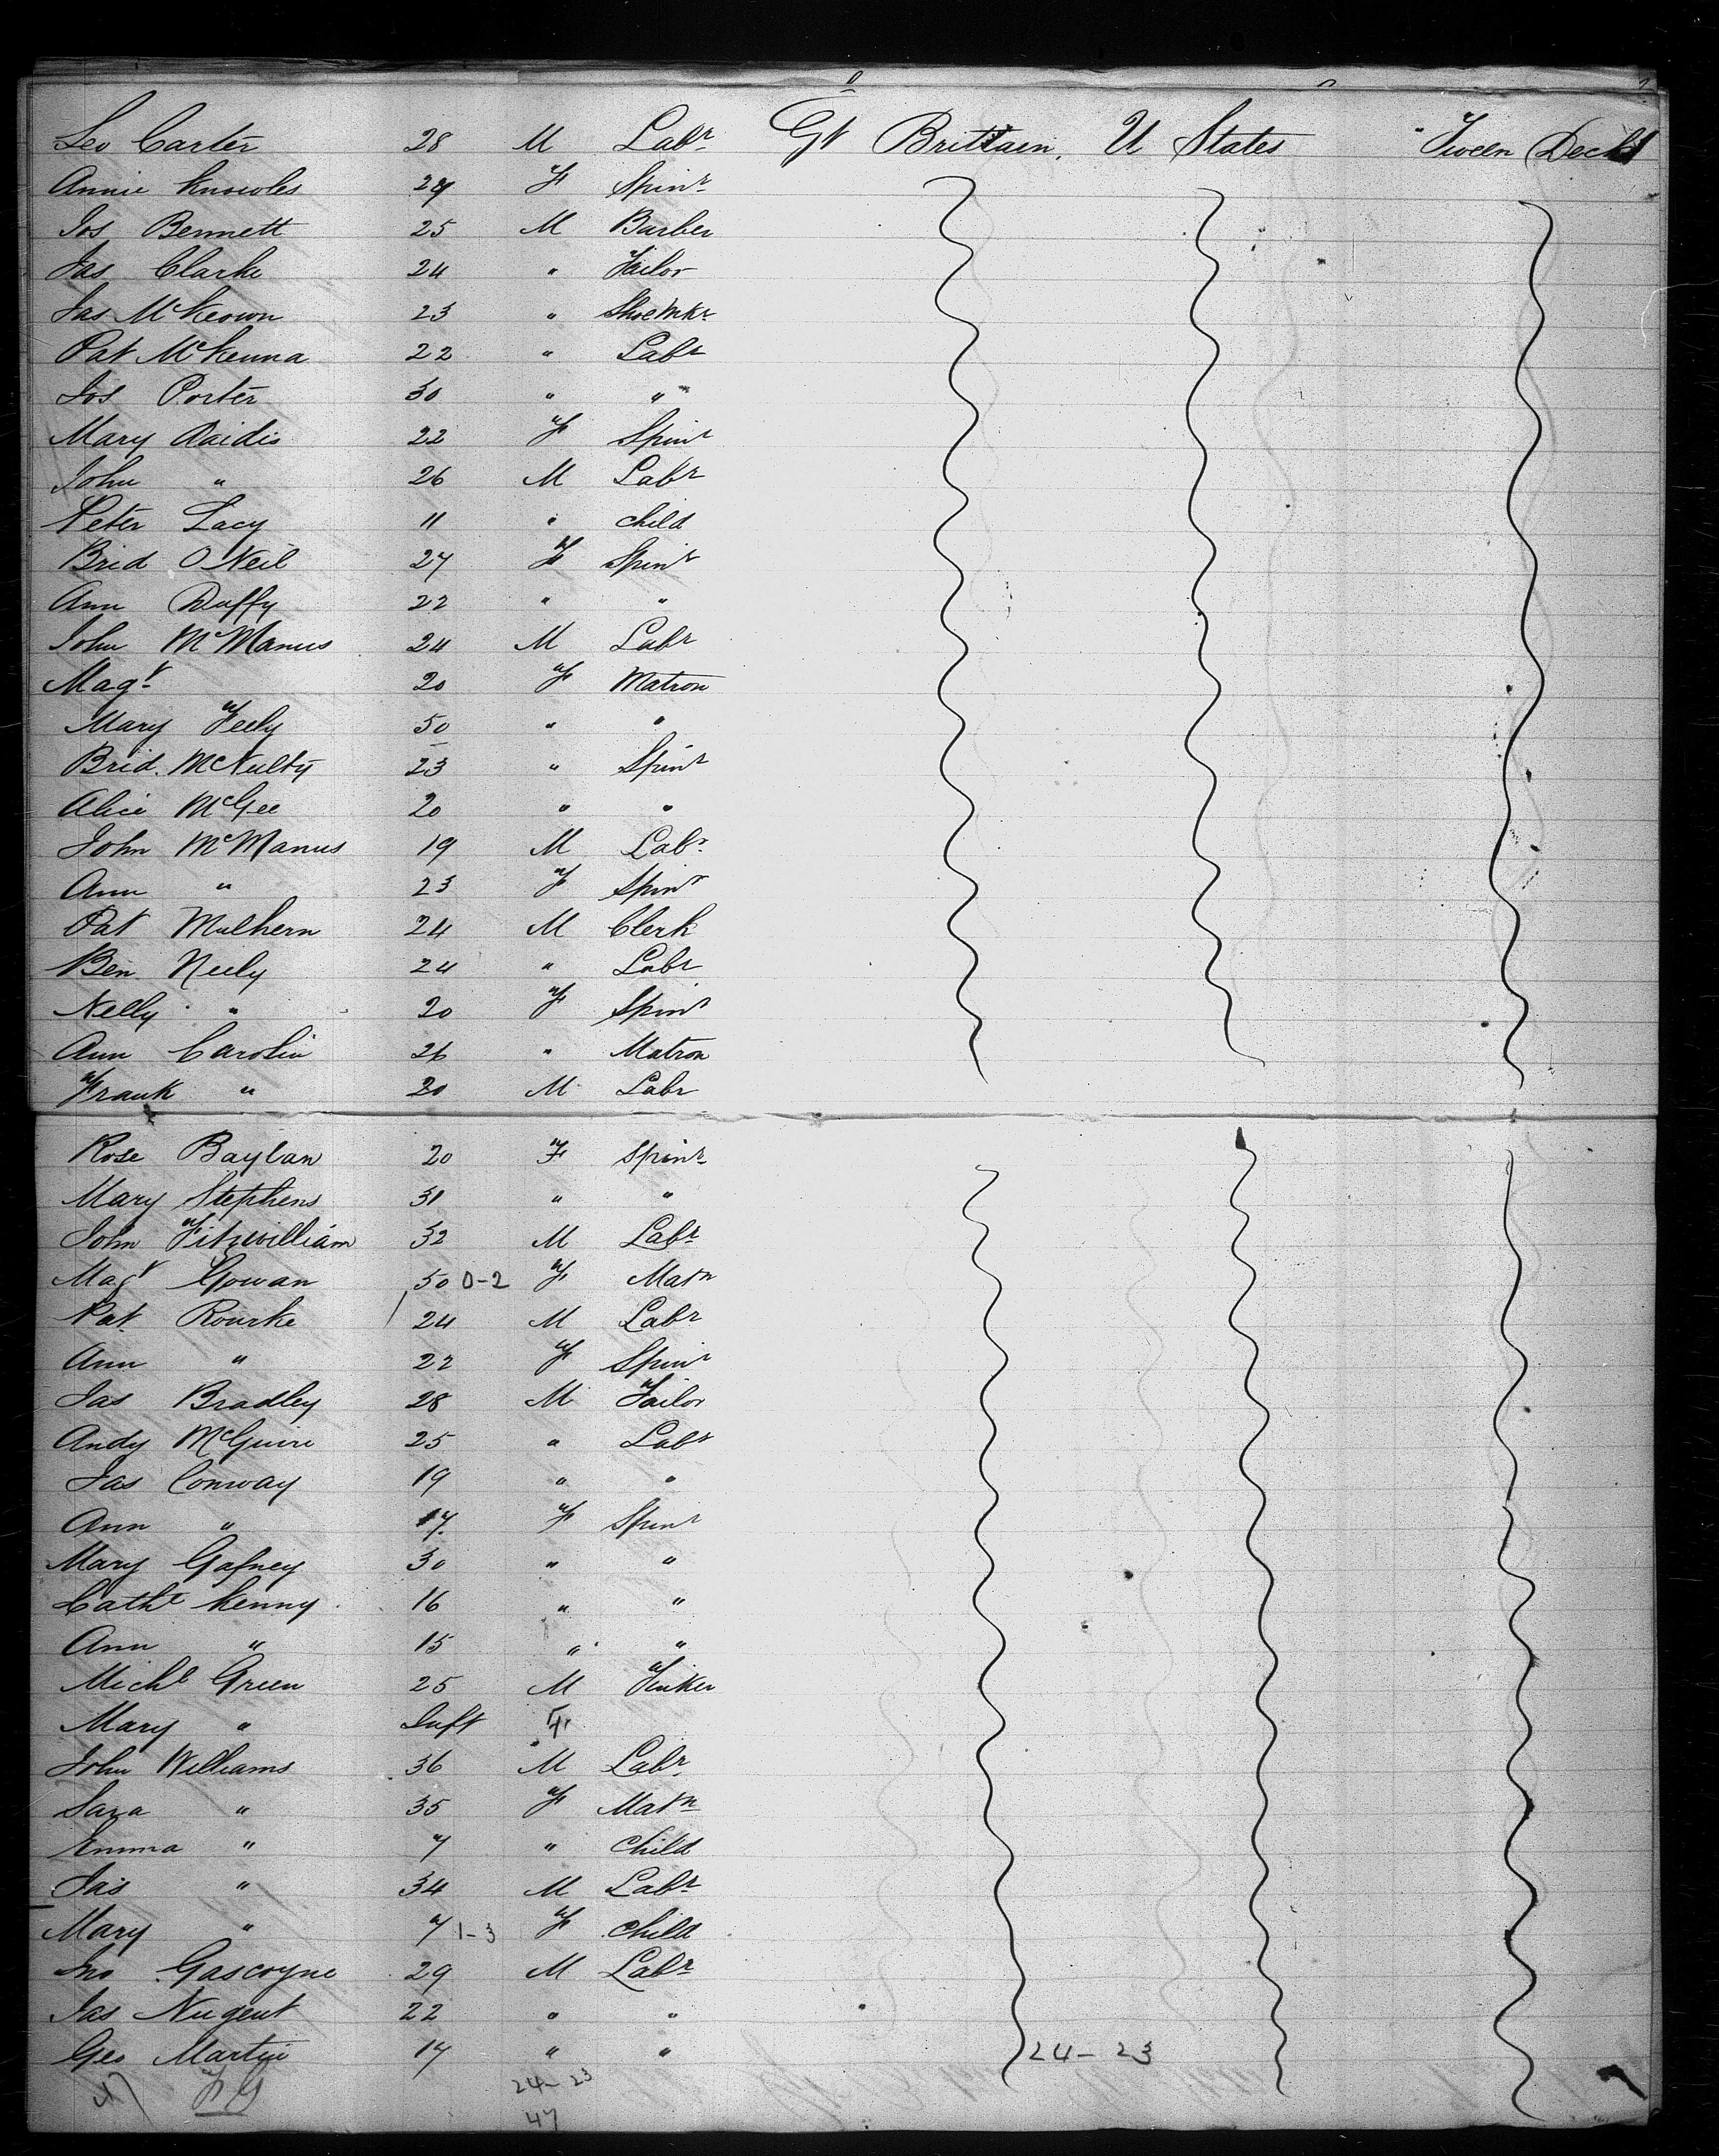 Leo Carter 28 M Labr Gt Brittain. U States Tween Decks
Annie Knowles 24 F Spinr
Jos Bennett 25 M Barber
Jas Clarke 24 " Tailor
Jas McKeown 23 " ShoeMkr
Pat McKenna 22 " Labr
Jos Porter 30 " "
Mary 22 F Spinr
John " 26 M Labr
Peter Lacy 11 " child
Brid O Neil 27 F Spinr
Ann Duffy 22 " "
John McManus 24 M Labr
Magt 20 F Matron
Mary Feely 50 " "
Brid. McNulty 23 " Spinr
Alice McGee 20 " "
John McManus 19 M Labr
Ann " 23 F Spinr
Pat Mulhern 24 M Clerk
Ben Neely 24 " Labr
Nelly " 20 F Spinr
Ann Carolin 26 " Matron
Frank " 20 M Labr
Rose Baylan 20 F Spinr
Mary Stephens 31 " "
John Fitzwilliam 32 M Labr
Magt Gowan 50 0-2 F Matn
Pat Rourke 24 M Labr
Ann " 22 F Spinr
Jas Bradley 28 M Tailor
Andy McGuire 25 " Labr
Jas Conway 19 " "
Ann " 17 F Spinr
Mary Gafney 30 " "
Cathe Kenny 16 " "
Ann " 15 " "
Michl Green 25 M Tinker
Mary " Inft F
John Williams 36 M Labr
Sara " 35 F Matn
Emma " 7 " Child
Jas " 34 M Labr
Mary " 7 1-3 F child
Jno Gascoyne 29 M Labr
Jas Nugent 22 " "
Geo Martin 17 " " 24-23
24-23
47